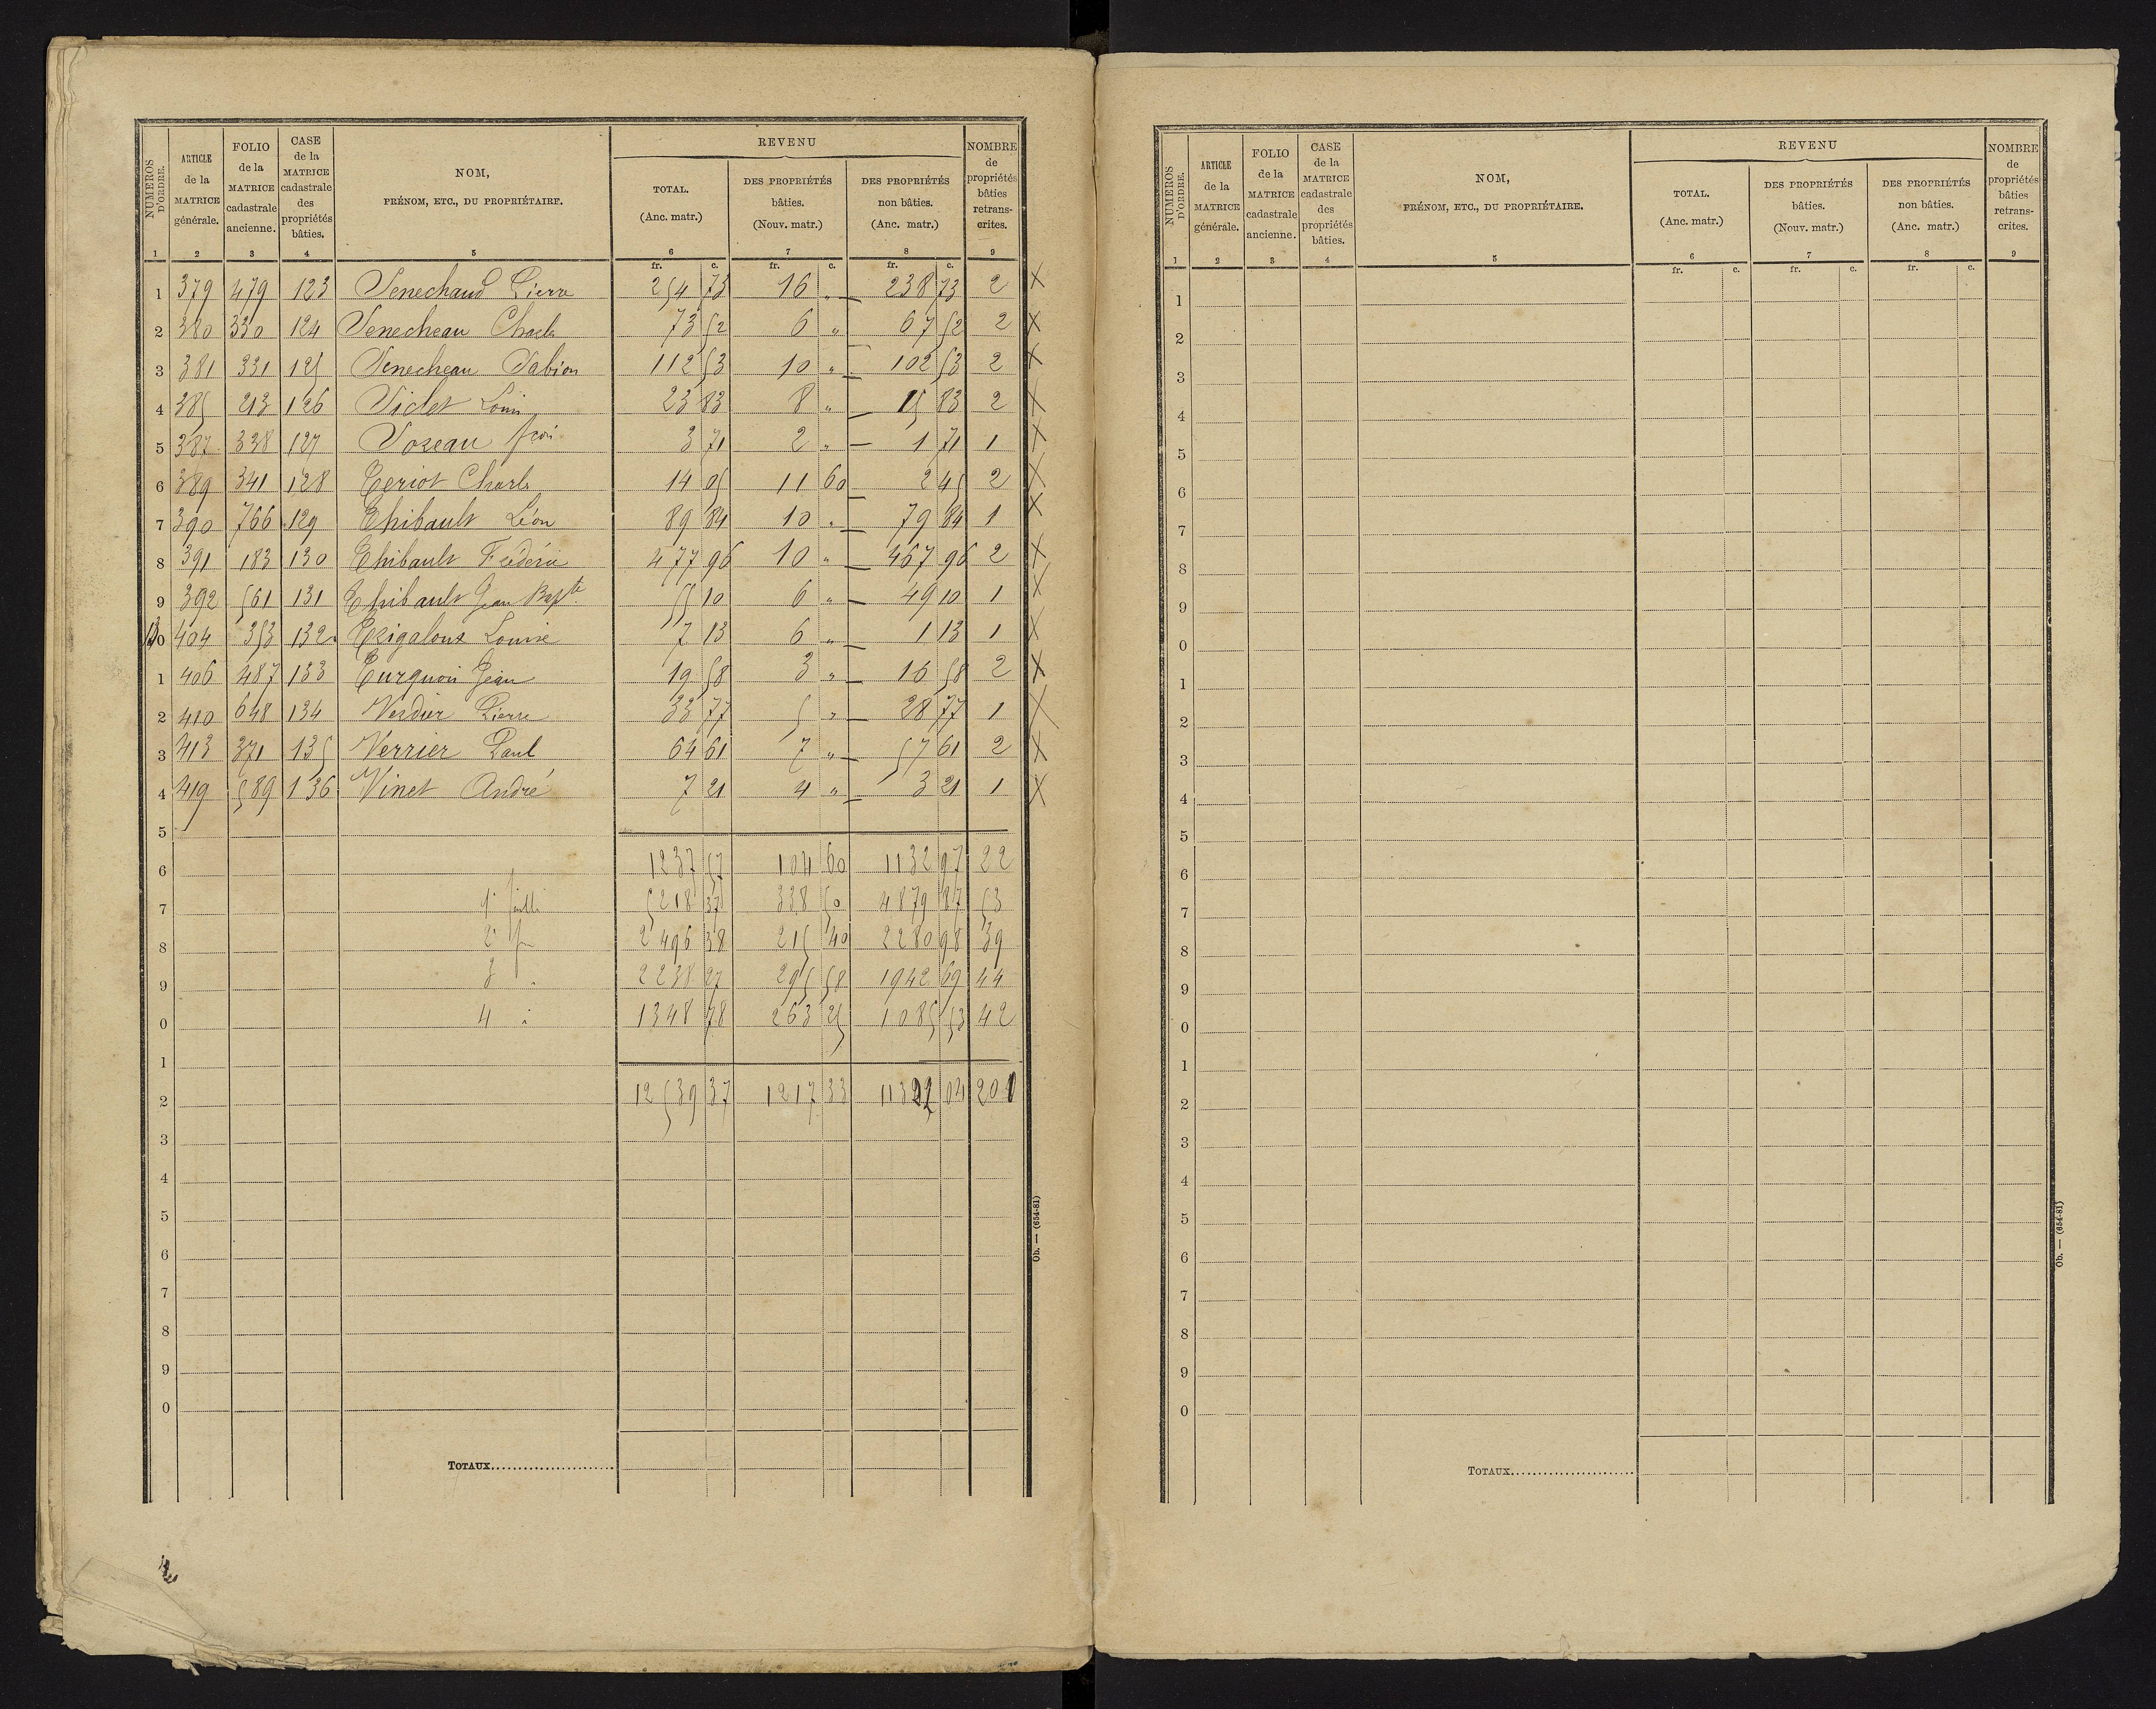 NUMÉROS D'ORDRE. | ARTICLE de la MATRICE générale. | FOLIO de la MATRICE cadastrale ancienne. | CASE de la MATRICE cadastrale des propriétés bâties. | NOM, PRÉNOM, ETC., DU PROPRIÉTAIRE. | REVENU | NOMBRE de propriétés bâties retranscrites.
TOTAL. (Anc. matr.) | DES PROPRIÉTÉS bâties. (Nouv. matr.) | DES PROPRIÉTÉS non bâties. (Anc. matr.)
1 | 2 | 3 | 4 | 5 | 6 | 7 | 8 | 9
fr. c. | fr. c. | fr. c.
1 | 379 | 479 | 123 | Senechaud Pierre | 254 73 | 16 " | 238 73 | 2 X
2 | 380 | 330 | 124 | Senecheau Charles | 73 52 | 6 " | 67 52 | 2 X
3 | 381 | 331 | 125 | Senecheau Fabien | 112 53 | 10 " | 102 53 | 2 X
4 | 385 | 213 | 126 | Siclet Louis | 23 83 | 8 " | 15 83 | 2 X
5 | 387 | 338 | 127 | Soreau fçois | 3 71 | 2 " | 1 71 | 1 X
6 | 389 | 341 | 128 | Teriot Charles | 14 05 | 11 60 | 2 45 | 2 X
7 | 390 | 766 | 129 | Thibault Léon | 89 84 | 10 " | 79 84 | 1 X
8 | 391 | 183 | 130 | Thibault Frédéric | 477 96 | 10 " | 467 96 | 2 X
9 | 392 | 561 | 131 | Thibault Jean Bapte | 55 10 | 6 " | 49 10 | 1 X
0 | 404 | 353 | 132 | Trigaloux Louise | 7 13 | 6 " | 1 13 | 1 X
1 | 406 | 487 | 133 | Turquois Jean | 19 58 | 3 " | 16 58 | 2 X
2 | 410 | 648 | 134 | Verdier Pierre | 33 77 | 5 " | 28 77 | 1 X
3 | 413 | 371 | 135 | Verrier Paul | 64 61 | 7 " | 57 61 | 2 X
4 | 419 | 589 | 136 | Vinet André | 7 21 | 4 " | 3 21 | 1 X
5
6 | 1237 57 | 104 60 | 1132 97 | 22
7 | 1e feuille | 5218 37 | 338 50 | 4879 87 | 53
8 | 2e | 2496 38 | 215 40 | 2280 98 | 39
9 | 3 " | 2238 27 | 295 58 | 1942 69 | 44
0 | 4 " | 1348 78 | 263 25 | 1085 53 | 42
1
2 | 12539 37 | 1217 33 | 11322 04 | 200
3
4
5
6
7
8
9
0
TOTAUX
Ob. — (654-81)
NUMÉROS D'ORDRE. | ARTICLE de la MATRICE générale. | FOLIO de la MATRICE cadastrale ancienne. | CASE de la MATRICE cadastrale des propriétés bâties. | NOM, PRÉNOM, ETC., DU PROPRIÉTAIRE. | REVENU | NOMBRE de propriétés bâties retranscrites.
TOTAL. (Anc. matr.) | DES PROPRIÉTÉS bâties. (Nouv. matr.) | DES PROPRIÉTÉS non bâties. (Anc. matr.)
1 | 2 | 3 | 4 | 5 | 6 | 7 | 8 | 9
fr. c. | fr. c. | fr. c.
1
2
3
4
5
6
7
8
9
0
1
2
3
4
5
6
7
8
9
0
1
2
3
4
5
6
7
8
9
0
TOTAUX
Ob. — (654-81)